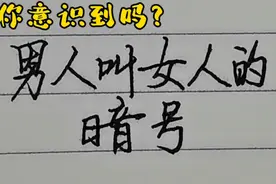 你意识到吗?
男人叫女人的
暗号